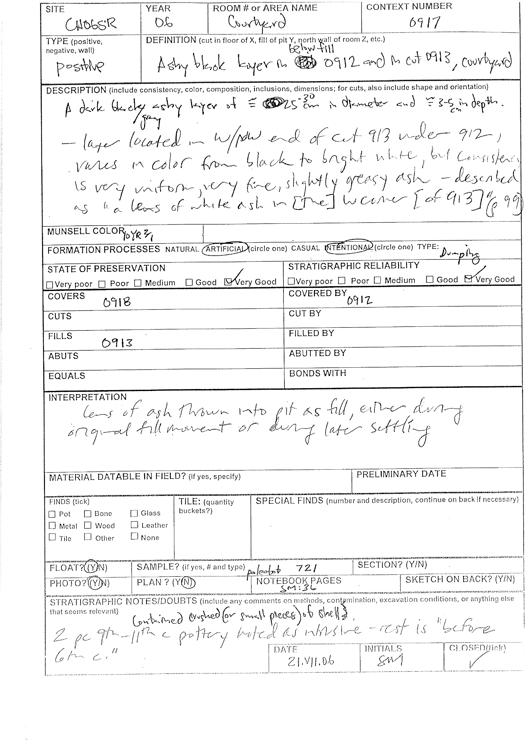 SITE YEAR ROOM # or AREA NAME CONTEXT NUMBER
CH06SR 06 Courtyard 0917
TYPE (positive, negative, wall) DEFINITION (cut in floor of X, fill of pit Y, north wall of room Z, etc.)
below fill
positive Ashy black layer in 0912 and in cut 0913, courtyard
DESCRIPTION (include consistency, color, composition, inclusions, dimensions; for cuts, also include shape and orientation)
A dark blacky ashy layer of ≡ 25-30 cm in diameter and ≡ 3-5 cm in depth.
/gray
- layer located in W/NW end of cut 913 under 912,
varies in color from black to bright white, but consistency
is very uniform, very fine, slightly greasy ash - described
as "a lens of white ash in [the] W corner [of 913]" (p 99)
MUNSELL COLOR 10YR 3/1
FORMATION PROCESSES NATURAL ARTIFICIAL (circle one) CASUAL INTENTIONAL (circle one) TYPE: Dumping
STATE OF PRESERVATION STRATIGRAPHIC RELIABILITY
Very poor Poor Medium Good Very Good Very poor Poor Medium Good Very Good
COVERS 0918 COVERED BY 0912
CUTS CUT BY
FILLS 0913 FILLED BY
ABUTS ABUTTED BY
EQUALS BONDS WITH
INTERPRETATION
Lens of ash thrown into pit as fill, either during
original fill movement or during later settling
MATERIAL DATABLE IN FIELD? (if yes, specify) PRELIMINARY DATE
FINDS (tick) TILE: (quantity buckets?) SPECIAL FINDS (number and description, continue on back if necessary)
Pot Bone Glass
Metal Wood Leather
Tile Other None
FLOAT? (Y/N) SAMPLE? (if yes, # and type) paleobot 721 SECTION? (Y/N)
PHOTO? (Y/N) PLAN? (Y/N) NOTEBOOK PAGES SM:36 SKETCH ON BACK? (Y/N)
STRATIGRAPHIC NOTES/DOUBTS (include any comments on methods, contamination, excavation conditions, or anything else that seems relevant)
Contained crushed (or small pieces) of shell}
2 pc 9th-11th c pottery noted as intrusive - rest is "before
6th c."
DATE INITIALS CLOSED(tick)
21.VII.06 SM